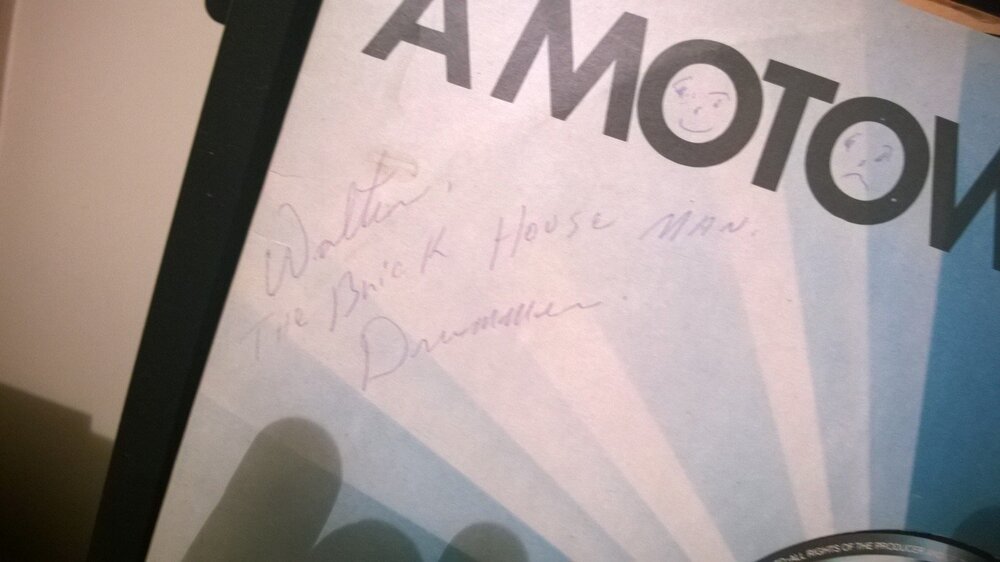 A MOTOW
Walter.
The Brick House Man.
Drummer.
ALL RIGHTS OF THE PRODUCER AND